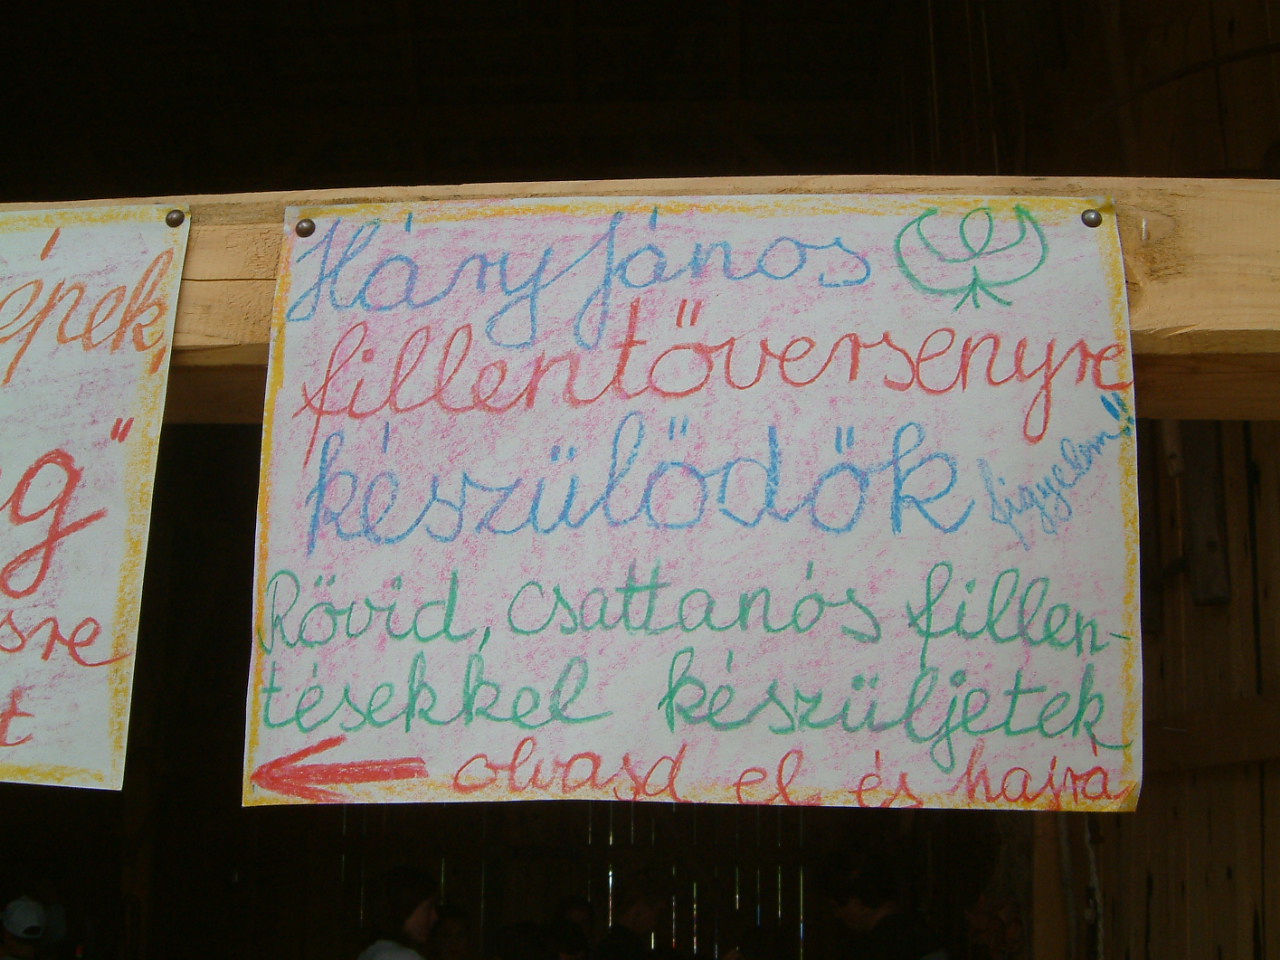 épek,
g"
sre
t
Háry János
fillentőversenyre
készülődők figyelem!!
Rövid, csattanós fillen-
tésekkel készüljetek
olvasd el és hajrá